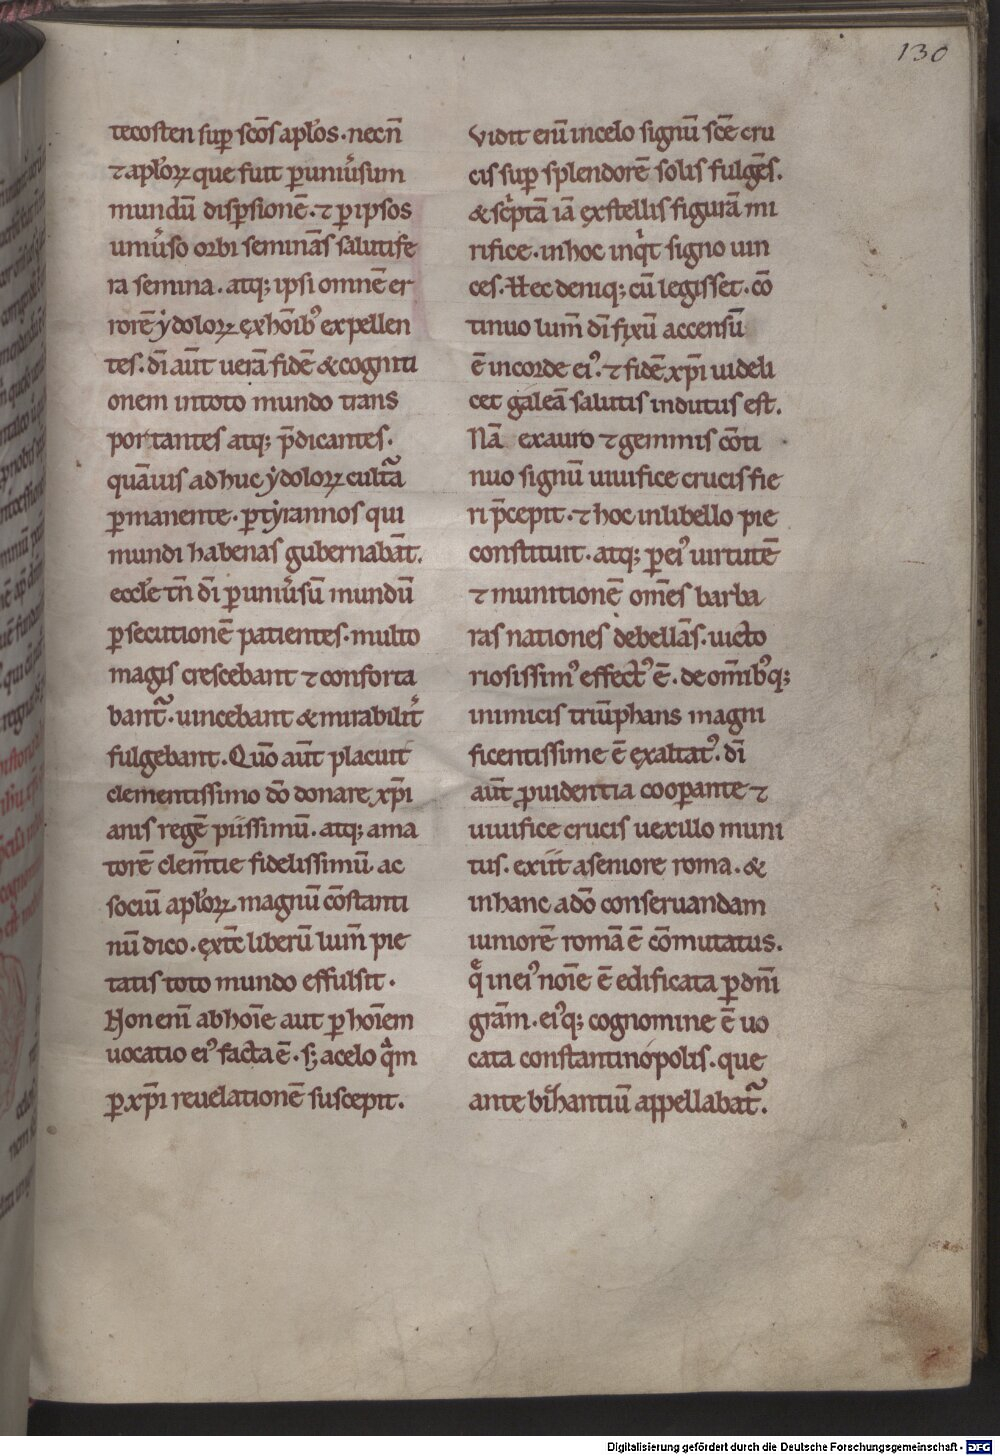 130
tecosten suꝑ sc̄os aplꝰos · necn̄
⁊ aploꝝ que fuit ꝑ uniu̓sum
mundū disꝑsionē · ⁊ ꝑ ipsos
uniu̓so orbi seminās salutife
ra semina . atq; ipsi omnē er
rorē ẏdoloꝝ ęx hōib; expellen
tes . dī aūt uerā fidē & cogniti
onem in toto mundo trans
portantes atq; p̄dicantes .
quāuis ad huc ẏdoloꝝ cultā
ꝑmanente · ꝑ tẏrannos qui
mundi habenas gubernabāt .
eccl̄e tn̄ dī ꝑ uniu̓sū mundū
ꝑsecutionē patientes · multo
magis crescebant ⁊ conforta
bant̄ · uincebant & mirabilit̓
fulgebant . Quō aūt placuit
clementissimo dō donare xp̄i
anis regē piissimū . atq; ama
torē clem̄tie fidelissimū . ac
sociū aploꝝ . magnū cōstanti
nū dico . ęx t̄c liberū lum̄ pie
tatis toto mundo effulsit .
Non enī ab hoīe aut ꝑ hoīem
uocatio eiꝰ facta ē . s; a celo qͣm
ꝑ xp̄i reuelationē suscepit .
Vidit enī in celo signū sc̄e cru
cis suꝑ splendorē solis fulgēs .
& sc̓ptā iā ęx stellis figurā mi
rifice . in hoc inq̓t signo uin
ces . Hec deniq; cū legisset . cō
tinuo lum̄ dī fixū accensū
ē in corde eiꝰ . ⁊ fidē xp̄i uideli
cet galeā salutis indutus est .
Nā ex auro ⁊ gemmis cōti
nuo signū uiuifice crucis fie
ri p̄cepit . ⁊ hoc in libello pie
constituit . atq; ꝑ eiꝰ uirtutē
⁊ munitionē om̄es barba
ras nationes debellās . uicto
riosissimꝰ effectꝰ ē . de om̄ibꝰq;
inimicis triūphans magni
ficentissime ē ęxaltatꝰ . dī
aūt ꝓuidentia cooꝑante ⁊
uiuifice crucis uexillo muni
tus . exiit a seniore roma . &
in hanc a dō conseruandam
iuniorē romā ē cōmutatus .
q̄ in eiꝰ noīe ē edificata ꝑ dn̄i
grām . eiꝰq; cognomine ē uo
cata constantinopolis . que
ante biꝫhantiū appellabat̄ .
Digitalisierung gefördert durch die Deutsche Forschungsgemeinschaft - DFG